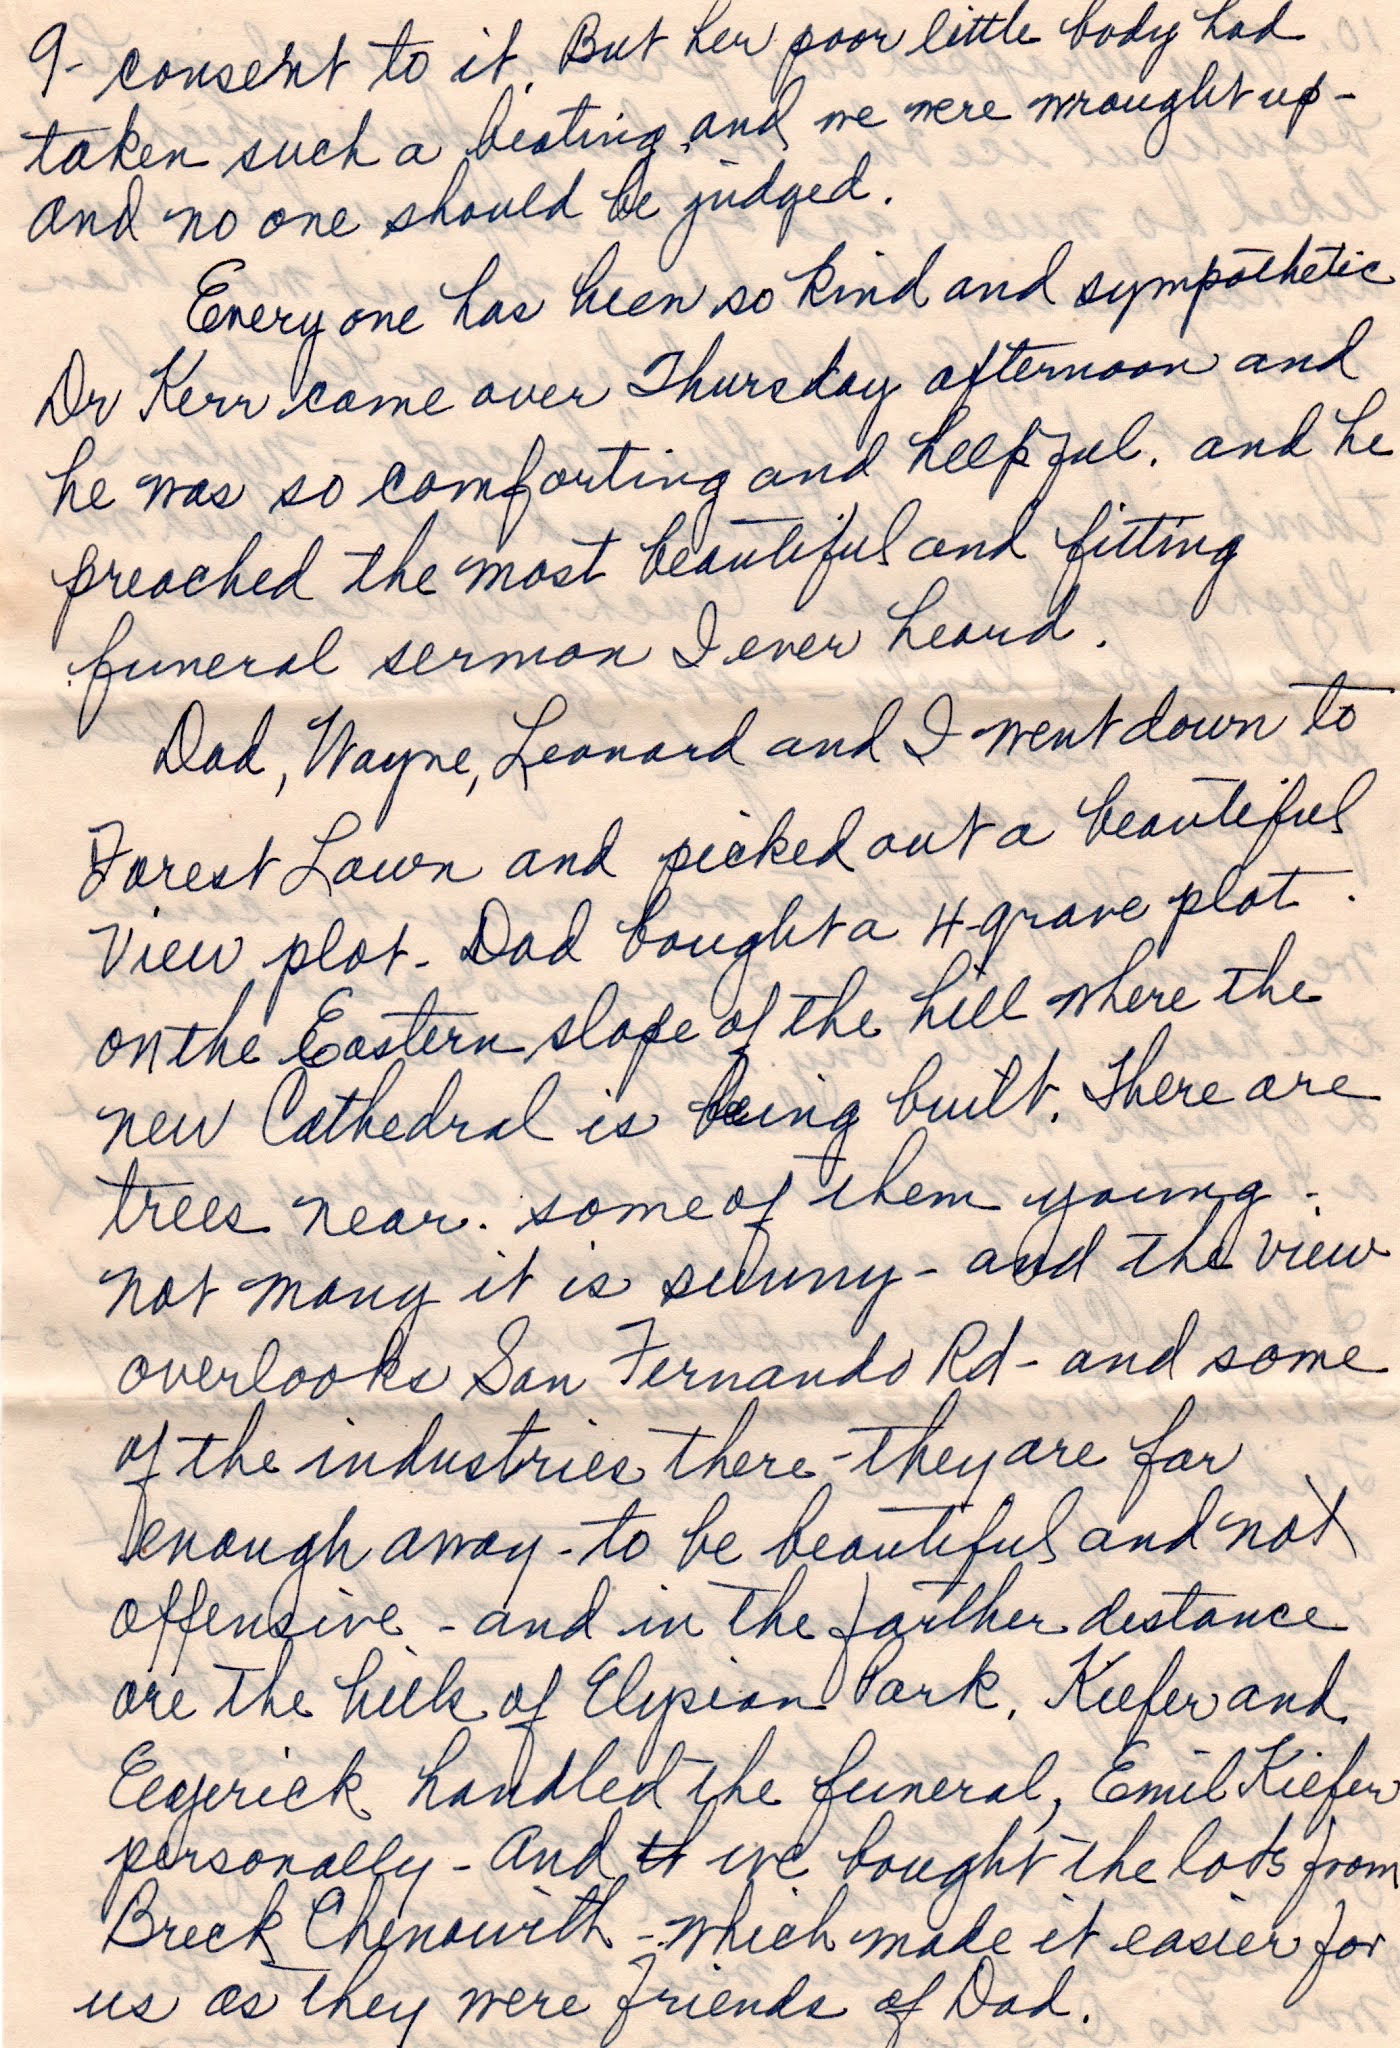 9- consent to it. But her poor little body had
taken such a beating, and we were wrought up -
and no one should be judged.
Everyone has been so kind and sympathetic
Dr Kerr came over Thursday afternoon and
he was so comforting and helpful. and he
preached the most beautiful and fitting
funeral sermon I ever heard.
Dad, Wayne, Leonard and I went down to
Forest Lawn and picked out a beautiful
View plot - Dad bought a 4-grave plot.
on the Eastern slope of the hill where the
new Cathedral is being built. There are
trees near. some of them young -
not many it is sunny - and the view
overlooks San Fernando Rd - and some
of the industries there - they are far
enough away - to be beautiful and not
offensive - and in the farther distance
are the hills of Elysian Park. Kiefer and
Eeyerick handled the funeral, Emil Kiefer
personally - And th we bought the lots from
Breck Chenowith - which made it easier for
us as they were friends of Dad.